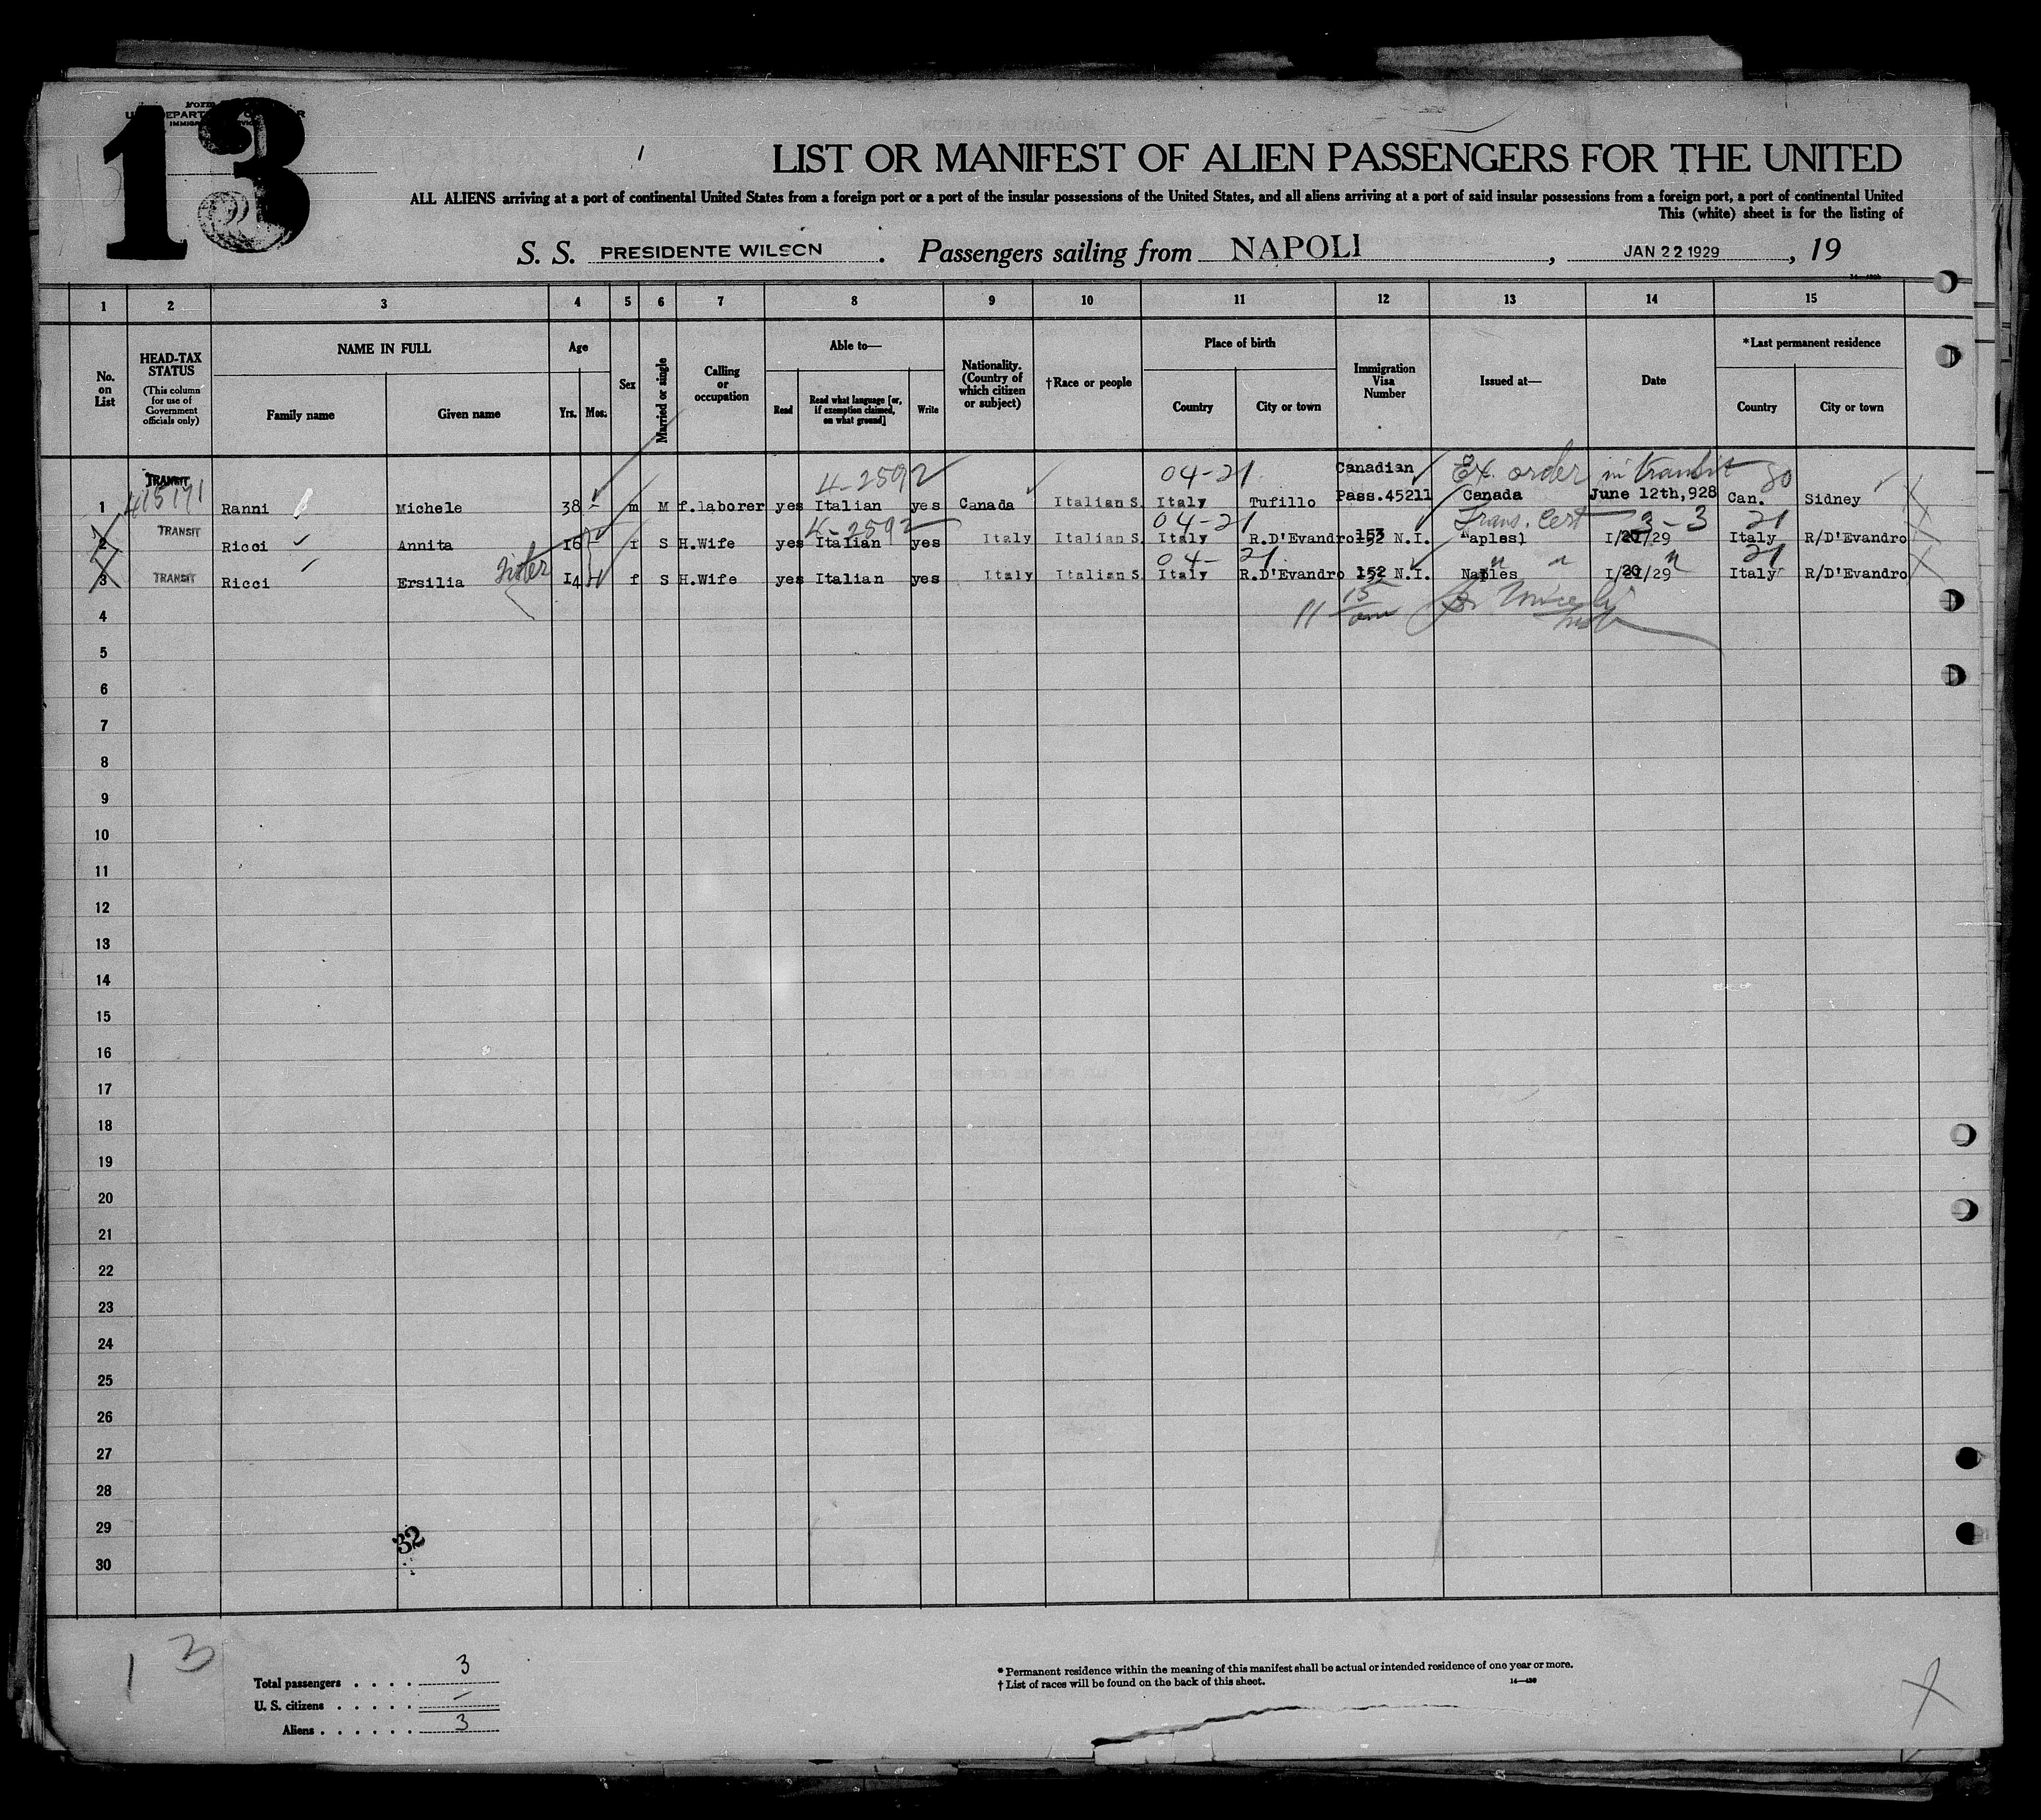 13
Form
U. S. DEPARTMENT OF LABOR
IMMIGRATION SERVICE
1
LIST OR MANIFEST OF ALIEN PASSENGERS FOR THE UNITED
ALL ALIENS arriving at a port of continental United States from a foreign port or a port of the insular possessions of the United States, and all aliens arriving at a port of said insular possessions from a foreign port, a port of continental United
This (white) sheet is for the listing of
S. S. PRESIDENTE WILSON. Passengers sailing from NAPOLI, JAN 22 1929, 19
1 2 3 4 5 6 7 8 9 10 11 12 13 14 15
No. on List
HEAD-TAX STATUS (This column for use of Government officials only)
NAME IN FULL
Family name Given name
Age
Yrs. Mos.
Sex
Married or single
Calling or occupation
Able to—
Read Read what language [or, if exemption claimed, on what ground] Write
Nationality. (Country of which citizen or subject)
†Race or people
Place of birth
Country City or town
Immigration Visa Number
Issued at—
Date
*Last permanent residence
Country City or town
TRANSIT 4-2592 04-21 Canadian Ex. order in transit 80
1 415171 Ranni Michele 38 - m M f.laborer yes Italian yes Canada Italian S. Italy Tufillo Pass.45211 Canada June 12th,928 Can. Sidney
TRANSIT 4-2592 04-21 Trans. Cert 3-3 21
2 Ricci Annita 16 f S H.Wife yes Italian yes Italy Italian S. Italy R.D'Evandro 153 N.I. Naples) I/20/29 Italy R/D'Evandro
sister 04-21 " " " 21
3 TRANSIT Ricci Ersilia 14 f S H.Wife yes Italian yes Italy Italian S. Italy R.D'Evandro 152 N.I. Naples I/20/29 Italy R/D'Evandro
11 15 am
4
5
6
7
8
9
10
11
12
13
14
15
16
17
18
19
20
21
22
23
24
25
26
27
28
29
30
32
1 3
Total passengers . . . . 3
U. S. citizens . . . . . —
Aliens . . . . . . 3
* Permanent residence within the meaning of this manifest shall be actual or intended residence of one year or more.
† List of races will be found on the back of this sheet.
X